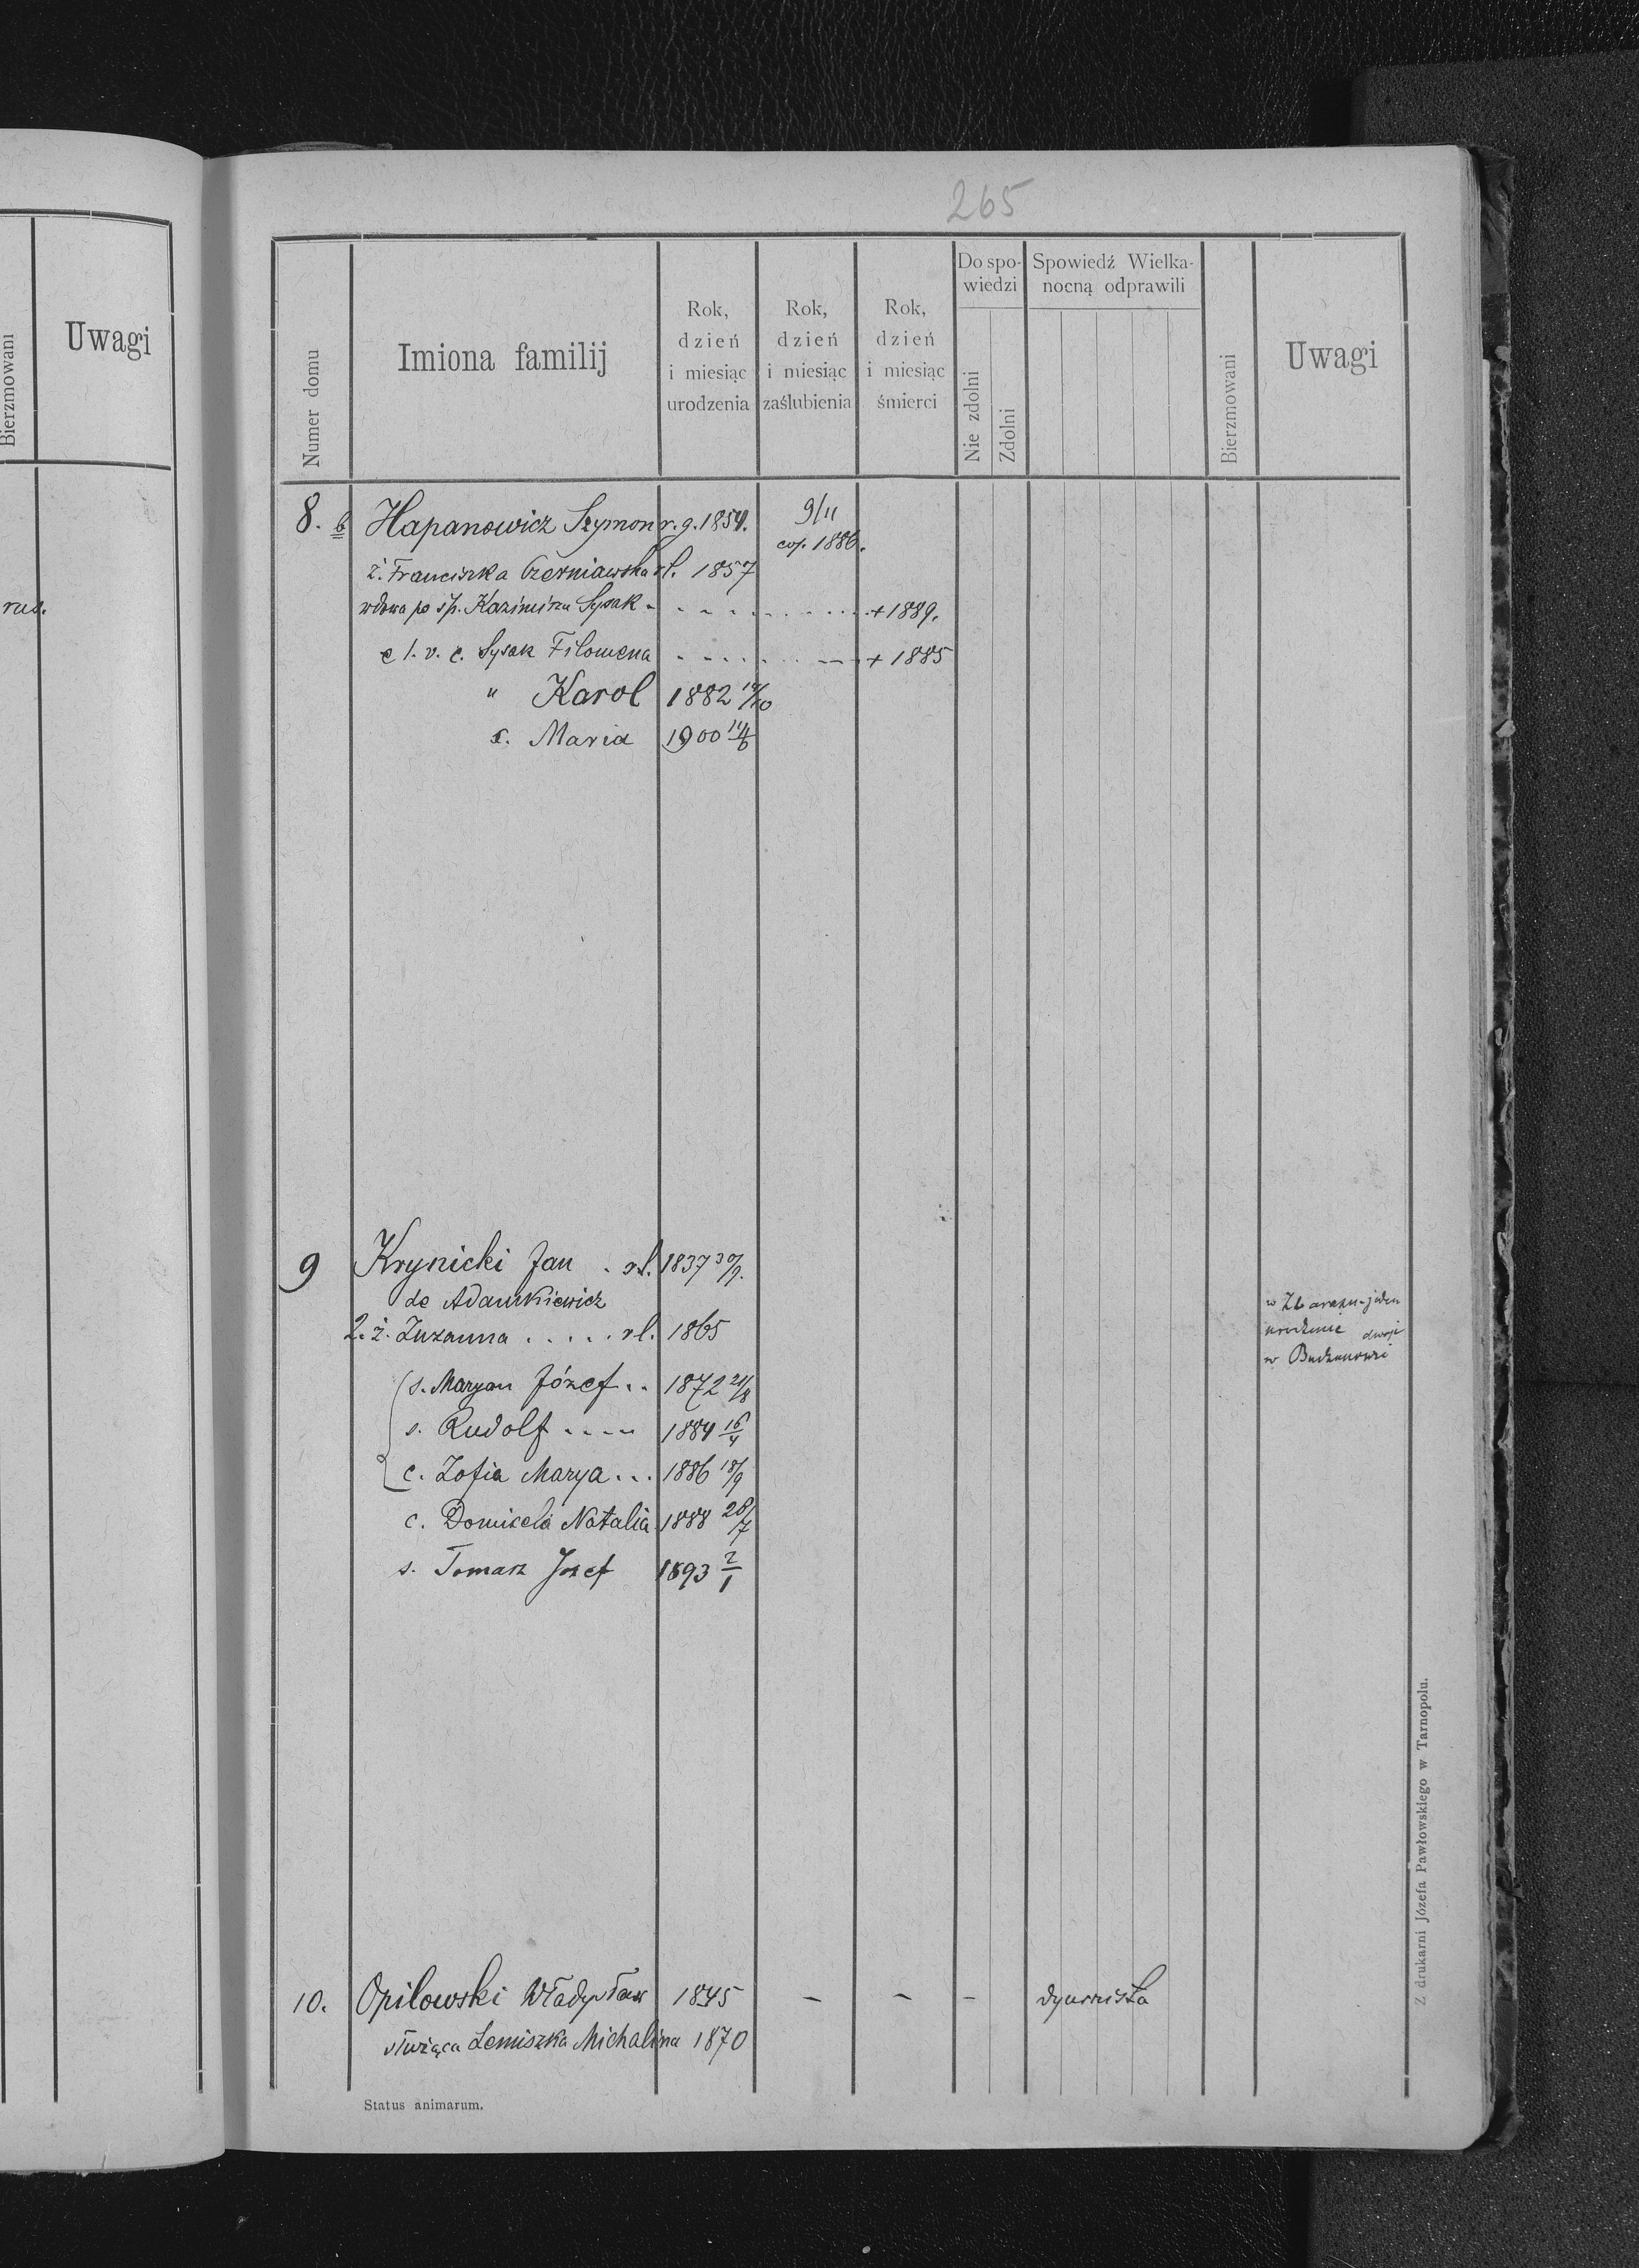 Bierzmowani
Uwagi
rus.
265
Numer domu
Imiona familij
Rok, dzień i miesiąc urodzenia
Rok, dzień i miesiąc zaślubienia
Rok, dzień i miesiąc śmierci
Do spowiedzi
Nie zdolni
Zdolni
Spowiedź Wielkanocną odprawili
Bierzmowani
Uwagi
8. b Hapanowicz Szymon r. g. 1854. 9/11 cop. 1886.
ż. Franciszka Czerniawska rl. 1857
wdowa po śp. Kazimirzu Sysak - - - - - + 1889.
c 1. v. c. Sysak Filomena - - - - - + 1885
" Karol 1882 14/10
c. Maria 1900 14/6
9 Krynicki Jan . rl. 1837 30/9.
de Adamkiewicz
2. ż. Zuzanna . . . . . rl. 1865
s. Maryan Józef . . 1872 21/8
s. Rudolf - - - - 1884 16/4
c. Zofia Marya . . . 1886 18/9
c. Domicela Natalia 1888 28/7
s. Tomasz Jozef 1893 2/1
w Zbarażu - jeden
urodzenie dwoje
w Budzanowie
10. Opilowski Władysław 1845 - - - dyurnista
służąca Lemiszka Michalina 1870
Status animarum.
Z drukarni Józefa Pawłowskiego w Tarnopolu.